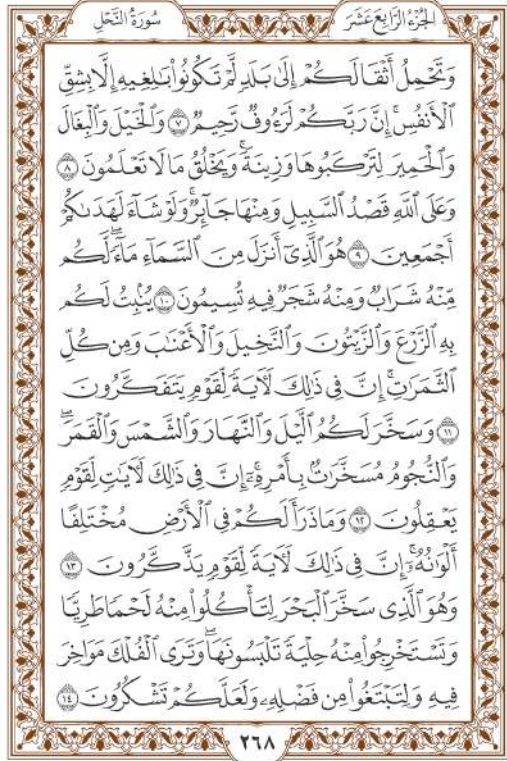 الجُزْءُ الرَّابِعَ عَشَرَ
سُورَةُ النَّحْلِ
وَتَحْمِلُ أَثْقَالَكُمْ إِلَىٰ بَلَدٍ لَّمْ تَكُونُوا۟ بَـٰلِغِيهِ إِلَّا بِشِقِّ
ٱلْأَنفُسِ ۚ إِنَّ رَبَّكُمْ لَرَءُوفٌ رَّحِيمٌ ٧ وَٱلْخَيْلَ وَٱلْبِغَالَ
وَٱلْحَمِيرَ لِتَرْكَبُوهَا وَزِينَةً ۚ وَيَخْلُقُ مَا لَا تَعْلَمُونَ ٨
وَعَلَى ٱللَّهِ قَصْدُ ٱلسَّبِيلِ وَمِنْهَا جَآئِرٌ ۚ وَلَوْ شَآءَ لَهَدَىٰكُمْ
أَجْمَعِينَ ٩ هُوَ ٱلَّذِىٓ أَنزَلَ مِنَ ٱلسَّمَآءِ مَآءً ۖ لَّكُم
مِّنْهُ شَرَابٌ وَمِنْهُ شَجَرٌ فِيهِ تُسِيمُونَ ١٠ يُنۢبِتُ لَكُم
بِهِ ٱلزَّرْعَ وَٱلزَّيْتُونَ وَٱلنَّخِيلَ وَٱلْأَعْنَـٰبَ وَمِن كُلِّ
ٱلثَّمَرَٰتِ ۗ إِنَّ فِى ذَٰلِكَ لَـَٔايَةً لِّقَوْمٍ يَتَفَكَّرُونَ
١١ وَسَخَّرَ لَكُمُ ٱلَّيْلَ وَٱلنَّهَارَ وَٱلشَّمْسَ وَٱلْقَمَرَ ۖ
وَٱلنُّجُومُ مُسَخَّرَٰتٌۢ بِأَمْرِهِۦٓ ۗ إِنَّ فِى ذَٰلِكَ لَـَٔايَـٰتٍ لِّقَوْمٍ
يَعْقِلُونَ ١٢ وَمَا ذَرَأَ لَكُمْ فِى ٱلْأَرْضِ مُخْتَلِفًا
أَلْوَٰنُهُۥٓ ۗ إِنَّ فِى ذَٰلِكَ لَـَٔايَةً لِّقَوْمٍ يَذَّكَّرُونَ ١٣
وَهُوَ ٱلَّذِى سَخَّرَ ٱلْبَحْرَ لِتَأْكُلُوا۟ مِنْهُ لَحْمًا طَرِيًّا
وَتَسْتَخْرِجُوا۟ مِنْهُ حِلْيَةً تَلْبَسُونَهَا ۖ وَتَرَى ٱلْفُلْكَ مَوَاخِرَ
فِيهِ وَلِتَبْتَغُوا۟ مِن فَضْلِهِۦ وَلَعَلَّكُمْ تَشْكُرُونَ ١٤
٢٦٨